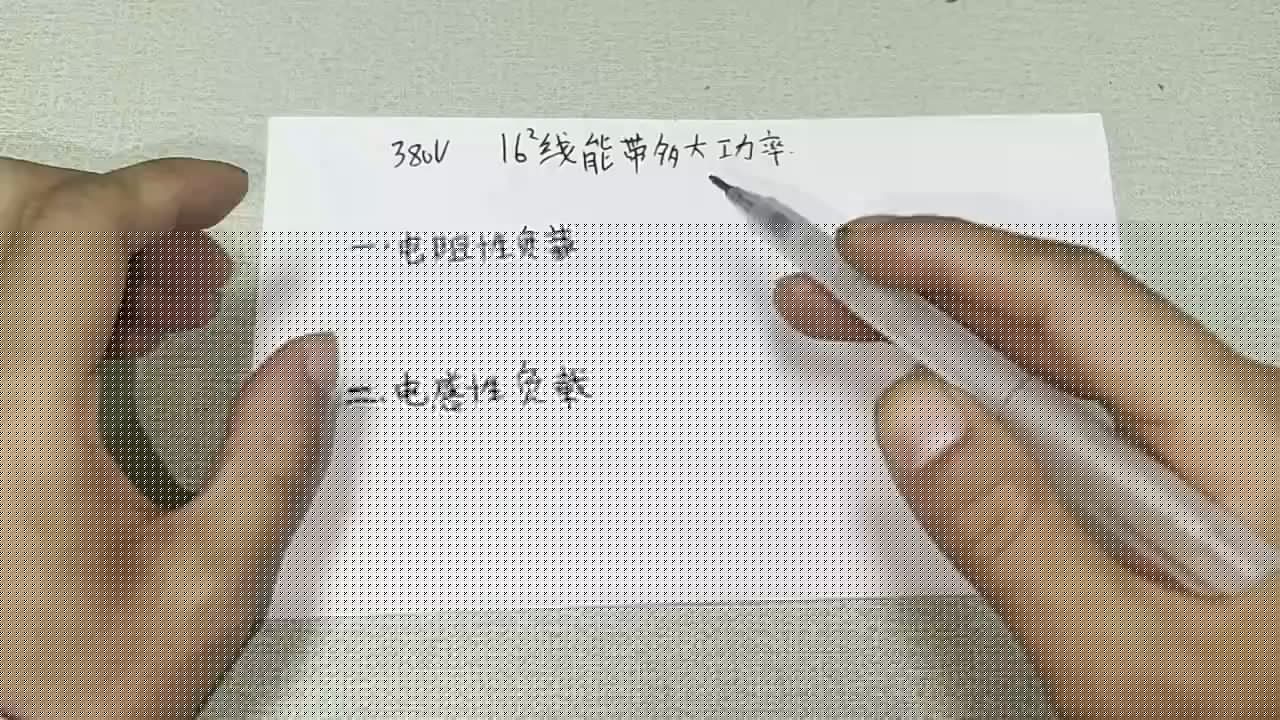 380V 16²线能带多大功率.
一.电阻性负载
二.电感性负载